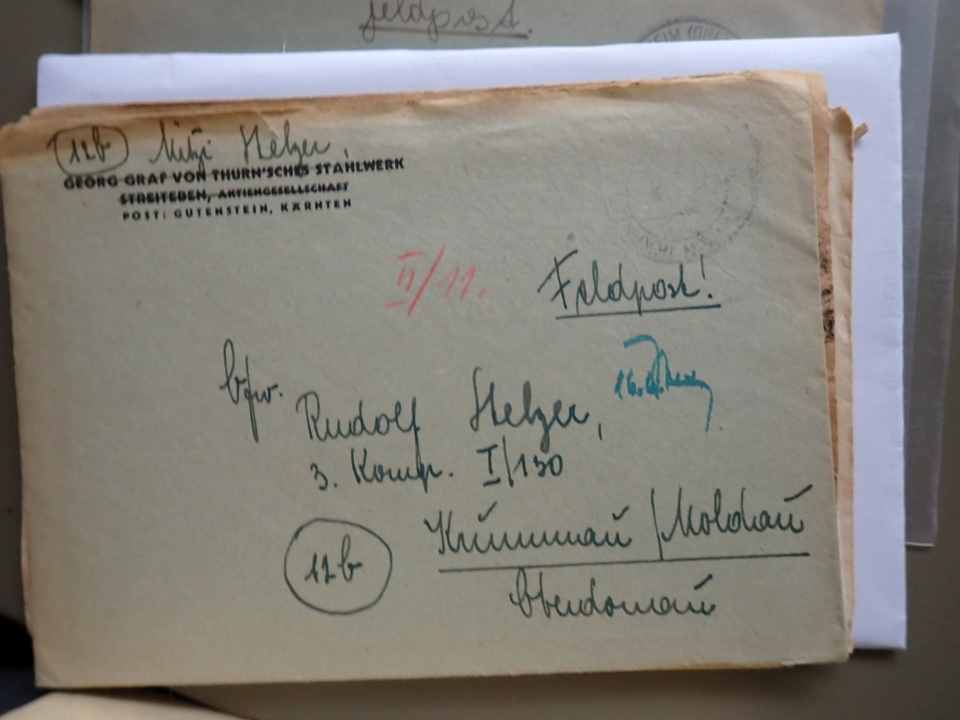 Feldpost.
12b Mitzi Stelzer,
GEORG GRAF VON THURN'SCHES STAHLWERK
STREITEBEN, AKTIENGESELLSCHAFT
POST: GUTENSTEIN, KÄRNTEN
II/11.
Feldpost!
Gfw.
Rudolf Stelzer,
3. Komp. I/130
Krummau/Moldau
12b
Oberdonau